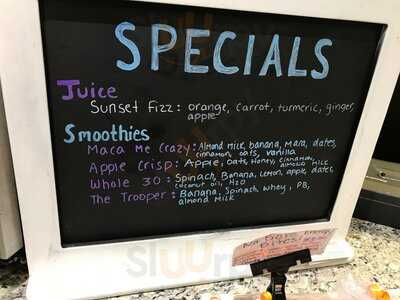 SPECIALS
Juice
Sunset Fizz: orange, carrot, turmeric, ginger,
apple
Smoothies
Maca Me Crazy: Almond milk, banana, mara, dates,
cinnamon, oats, vanilla
Apple Crisp: Apple, oats, Honey, cinnamon,
almond MILK
Whole 30: Spinach, Banana, Lemon, apple, dates,
coconut oil, H2O
The Trooper: Banana, Spinach, whey, PB,
almond Milk
sluurpy